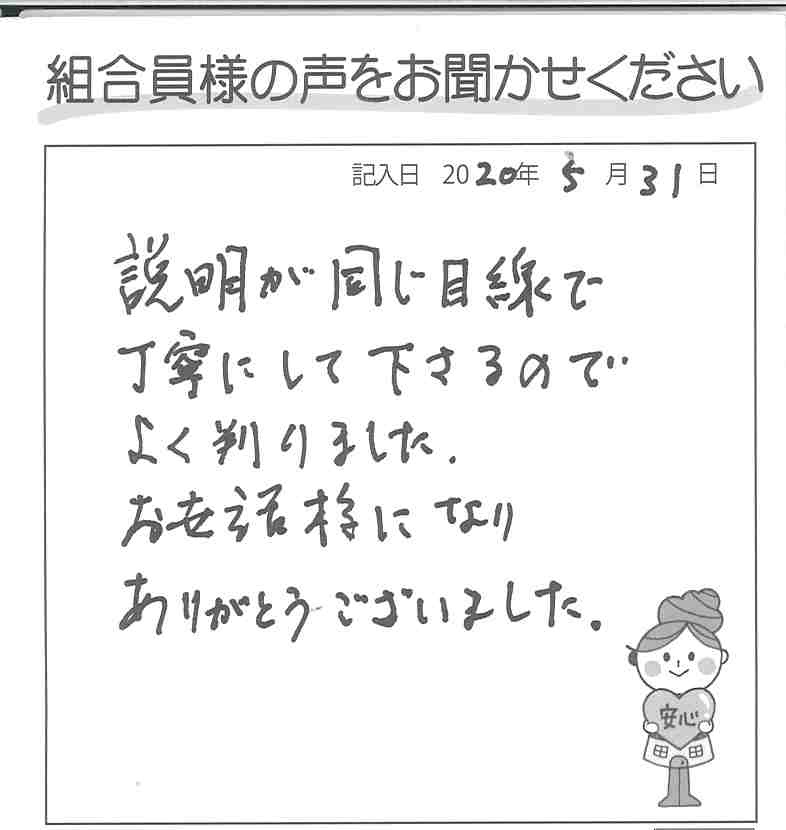 組合員様の声をお聞かせください
記入日 2020年 5月31日
説明が同じ目線で
丁寧にして下さるので
よく判りました.
お世話様になり
ありがとうございました.
安心